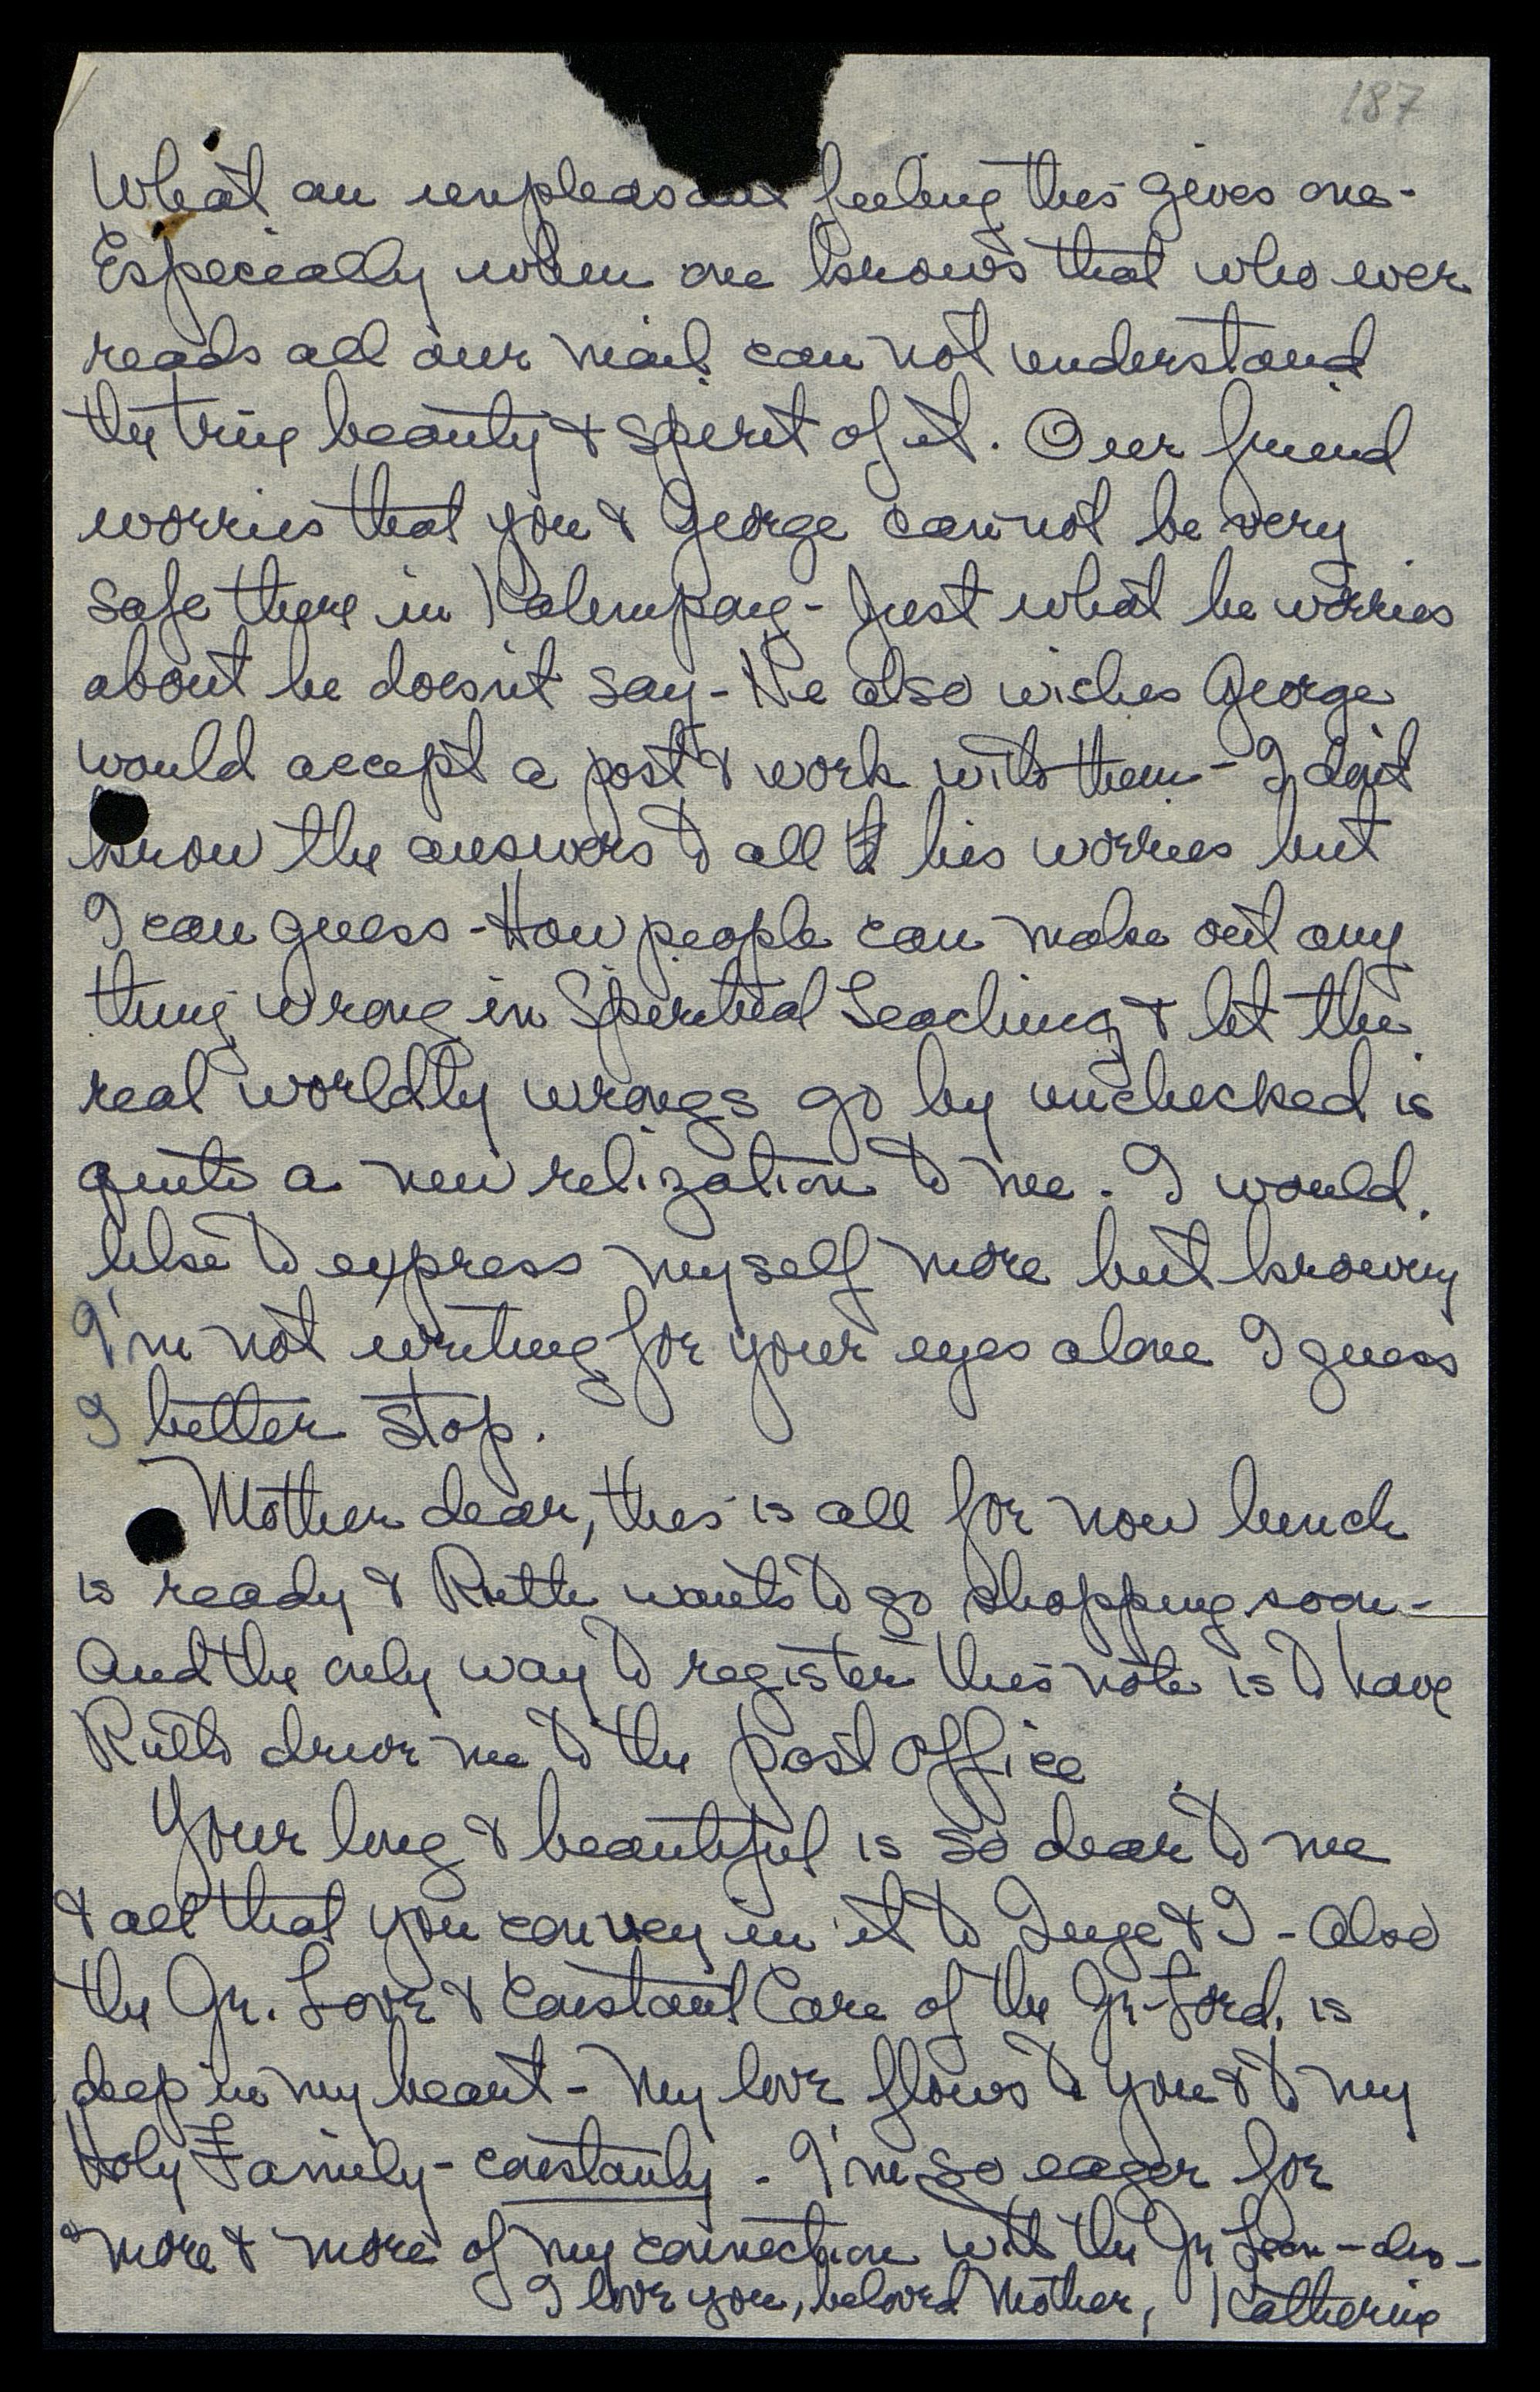 187
What an unpleasant feeling this gives one-
Especially when one knows that who ever
reads all our mail can not understand
the true beauty & spirit of it. Our friend
worries that you & George can not be very
safe there in Kalimpong - Just what he worries
about he doesn't say - He also wishes George
would accept a post & work with them - I don't
know the answers to all his worries but
I can guess - How people can make out any
thing wrong in Spiritual Teaching & let the
real worldly wrongs go by unchecked is
quite a new relization to me. I would
like to express myself more but knowing
I'm not writing for your eyes alone I guess
I better stop.
Mother dear, this is all for now lunch
is ready & Ruth wants to go shopping soon -
And the only way to register this note is to have
Ruth drive me to the post office
Your long & beautiful is so dear to me
& all that you convey in it to Inge & I - Also
the Gr. Love & Constant Care of the Gr. Lord, is
deep in my heart - My love flows to you & to my
Holy Family - constantly. I'm so eager for
more & more of my connection with the Gr
I love you, beloved Mother, Katherine